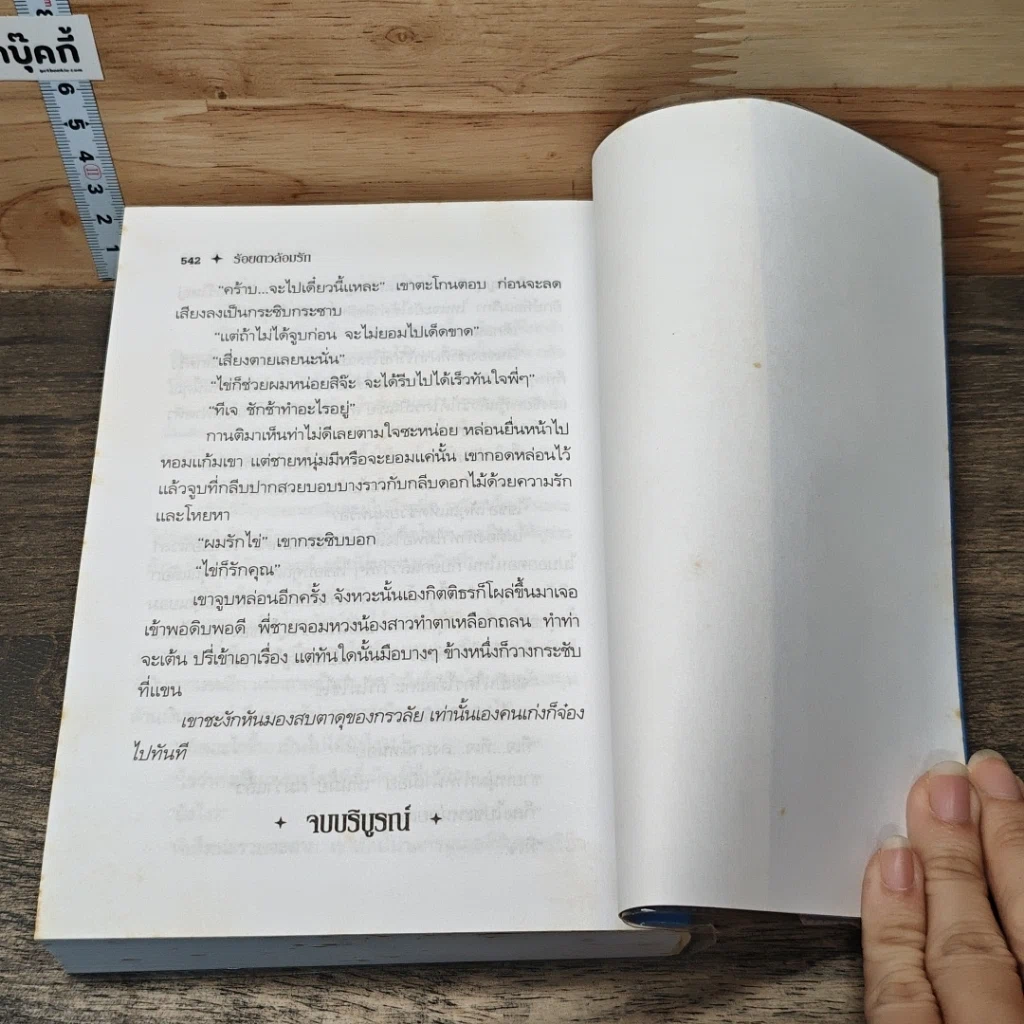 บุ๊คกี้
6
5
4
3
2
1
542 ✦ ร้อยดาวล้อมรัก
“คร้าบ...จะไปเดี๋ยวนี้แหละ” เขาตะโกนตอบ ก่อนจะลด
เสียงลงเป็นกระซิบกระซาบ
“แต่ถ้าไม่ได้จูบก่อน จะไม่ยอมไปเด็ดขาด”
“เสี่ยงตายเลยนะนั่น”
“ไข่ก็ช่วยผมหน่อยสิจ๊ะ จะได้รีบไปได้เร็วทันใจพี่ๆ”
“ทีเจ ชักช้าทำอะไรอยู่”
กานติมาเห็นท่าไม่ดีเลยตามใจซะหน่อย หล่อนยื่นหน้าไป
หอมแก้มเขา แต่ชายหนุ่มมีหรือจะยอมแค่นั้น เขากอดหล่อนไว้
แล้วจูบที่กลีบปากสวยบอบบางราวกับกลีบดอกไม้ด้วยความรัก
และโหยหา
“ผมรักไข่” เขากระซิบบอก
“ไข่ก็รักคุณ”
เขาจูบหล่อนอีกครั้ง จังหวะนั้นเองกิตติธรก็โผล่ขึ้นมาเจอ
เข้าพอดิบพอดี พี่ชายจอมหวงน้องสาวทำตาเหลือกถลน ทำท่า
จะเต้น ปรี่เข้าเอาเรื่อง แต่ทันใดนั้นมือบางๆ ข้างหนึ่งก็วางกระชับ
ที่แขน
เขาชะงักหันมองสบตาดุของกรวลัย เท่านั้นเองคนเก่งก็จ๋อง
ไปทันที
✦ จบบริบูรณ์ ✦